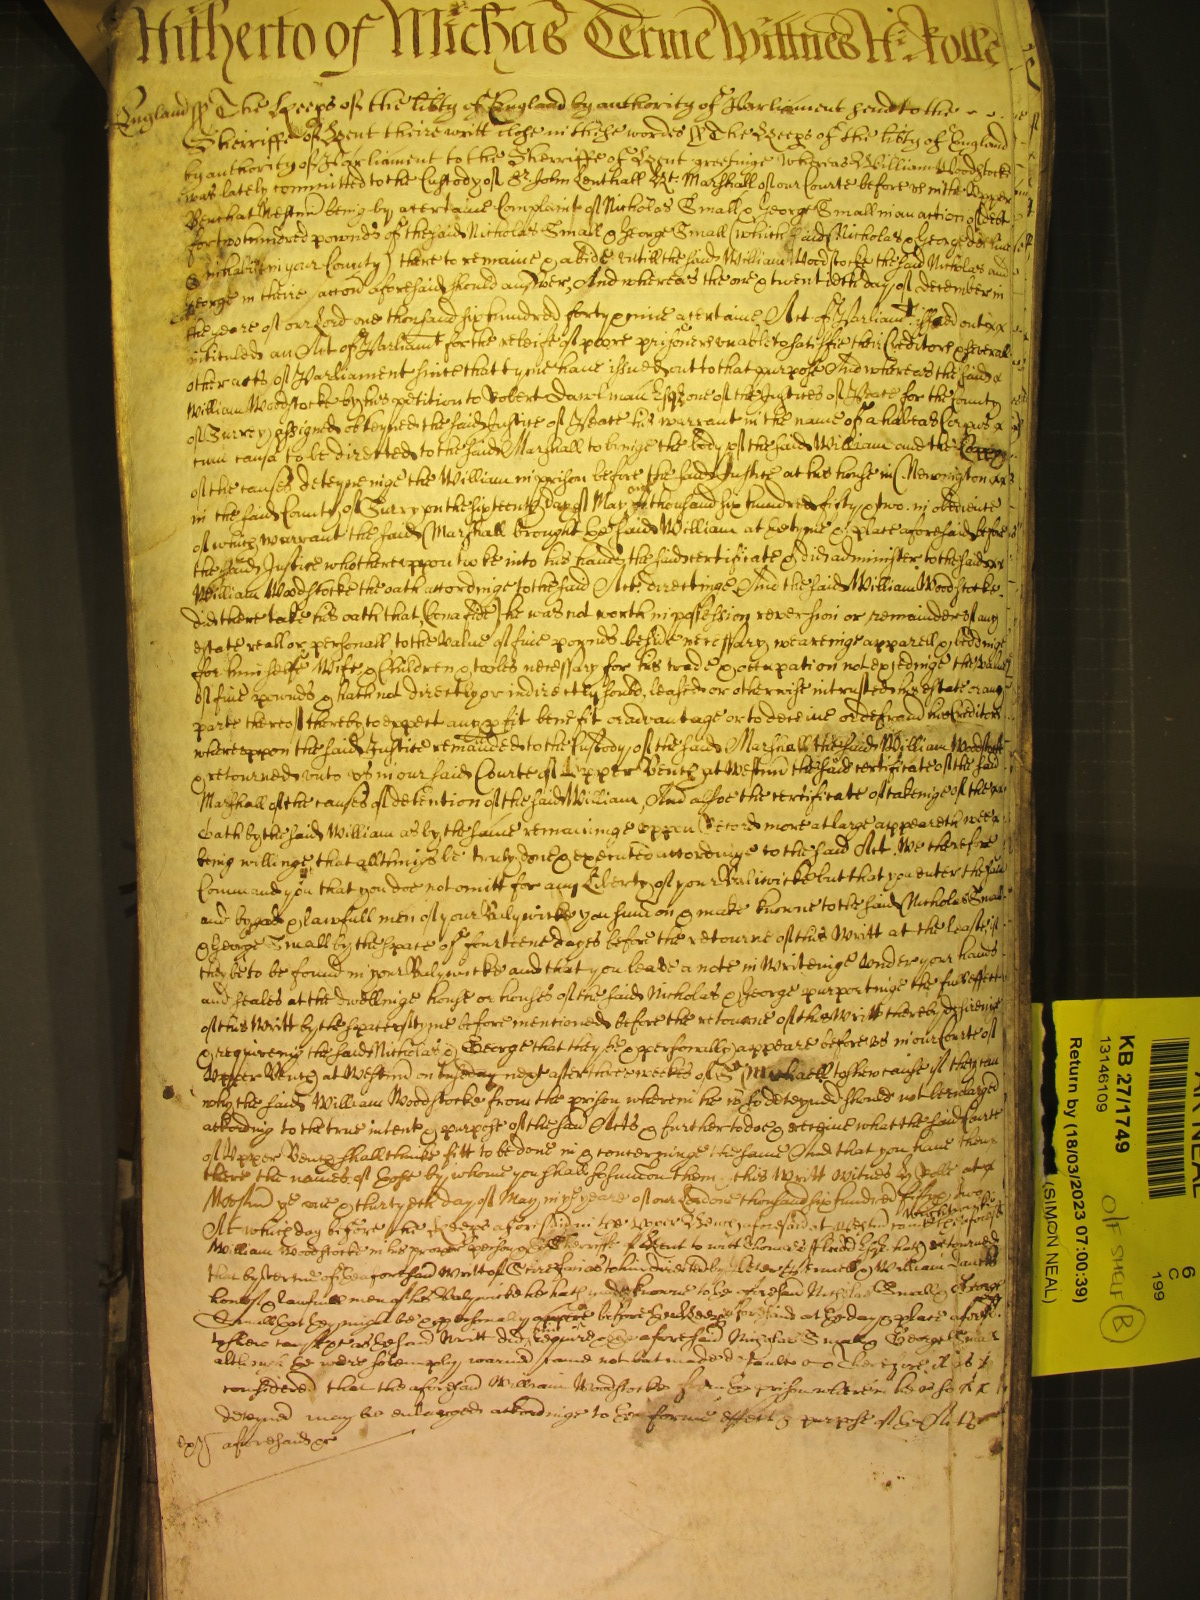 Hitherto of Michas Terme Wittnes H: Rolle
England ss The Keeps of the libty of England by authority of Parliament send to the
Sherriffe of Kent theire writt close in these wordes ss The Keeps of the libty of England
by authority of Parliament to the Sherriffe of Kent greetinge Whereas William Woodstocke
was lately committed to the Custody of Sr John Lenthall Kt Marshall of our Courte before us in the Upper
Bench at Westm being by a certaine Complaint of Nicholas Small & George Small in an action of debt
for two hundred pownds of the said Nicholas Small & George Small (which said Nicholas & George doe live
& inhabit in your County) there to remaine & abide untill the said William Woodstocke the said Nicholas and
George in theire accon aforesaid should answer, And whereas the one & twentidth day of December in
the yeare of our Lord one thousand six hundred forty & nine a certaine Act of Parliamt issued out
intituled an Act of Parliamt for the releife of poore prisoners unable to satisfie their Creditors & severall
other acts of Parliament since that tyme have issued out to that purpose And whereas the said
William Woodstocke by his petition to Robert Dawlman Esqr one of the Justices of Peace for the County
of Surrey assigned obteyned the said Justice of Peace his warrant in the name of a habeas Corpus
cum causa to be directed to the said Marshall to bringe the body of the said William and the
of the causes deteyneinge the William in prison before the said Justice at his house in Newington
in the said County of Surry on the sixteenth day of May one thousand six hundred fifty & two. in obedience
of which warrant the said Marshall brought the said William at the tyme & place aforesaid before
the said Justice who thereuppon tooke into his hands the said certificate & did administer to the said
William Woodstocke the oath accordinge to the said Act directinge And the said William Woodstocke
did there take his oath that (bonafide) he was not worth in possession reversion or remainder of any
estate reall or personall to the value of five pounds beside necessary weareinge apparell & beddinge
for himselfe Wife & Children & tooles necessary for his trade & occupation not exceedinge the value
of five pounds & hath not directly or indirectly sould, leased or otherwise intrusted his estate or any
parte thereof thereby to expect any pfit benefit or advantage or to deceive or defraud his Creditors
whereuppon the said Justice remaunded to the Custody of the said Marshall the said William Woodstocke
& retourned unto us in our said Courte of Upper Bench at Westm the said certificate of the said
Marshall of the causes of detention of the said William, And alsoe the certificate of takeinge of the
oath by the said William as by the same remaininge uppon Record more at large appeareth wee
being willinge that all things be truly done & executed accordinge to the said Act. We therefore
Command you that you doe not omitt for any Liberty of your Bailiwicke but that you enter the same
and by good & lawfull men of your Balywicke you sumon & make knowne to the said Nicholas Small
& George Small by the space of fourteene dayes before the retourne of this Writt at the least, if
they be to be found in your Balywicke and that you leave a note in Writeinge under your hands
and seales at the dwellinge house or houses of the said Nicholas & George purportinge the full effect
of this Writt by the space of tyme before mentioned before the retourne of this Writt thereby desireinge
& requireing the said Nicholas & George that they be & personally appeare before us in our Courte of
Upper Bench at Westm on tuesday next after three weekes of St Michaell to shew cause if they can
why the said William Woodstocke from the prison wherein he is so deteyned should not be enlarged
according to the true intent & purpose of the said Acts & further to doe & receive what the said Courte
of Upper Bench shall thinke fitt to be done in & concerninge the same And that you have then
there the names of those by whome you shall so sumon them & this Writt Witnes H: Rolle at
Westm ye one & thirtyeth day of May in ye yeare of our Lord one thousand six hundred fifty & two
At which day before the Keeps aforesaid in the Upper Bench aforesaid at Westm cometh the aforesaid
William Woodstocke in his proper person & the Sherriffe of Kent to witt Thomas Esqr hath retourned
that by vertue of the aforesaid writt of Scire facias to him directed by Peter & William
honest & lawfull men of his Balywicke he hath made knowne to the aforesaid Nicholas Small & George
Small that they might be & personally appeare before the Keeps aforesaid at the day & place aforesd
to shew as the said Writt did require & the aforesaid Nicholas Small & George Small
although they were solemply warned came not but made default Therefore it is
considered that the aforesaid William Woodstocke from the prison wherein he is so
deteyned may be enlarged accordinge to the forme effect & purpose of the Acts
aforesaid &c
KB 27/1749
13146109
Return by (18/03/2023 07:00:39)
(SIMON NEAL)
O/F SHELF (B)
6
C
199